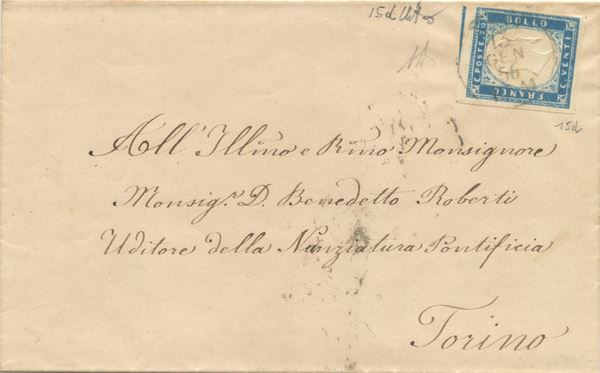 15d
C. POSTE 20
BOLLO
C. VENTI
FRANCO
13
GEN
56
15d
All'Illmo e Rmo Monsignore
Monsigr. D. Benedetto Roberti
Uditore della Nunziatura Pontificia
Torino